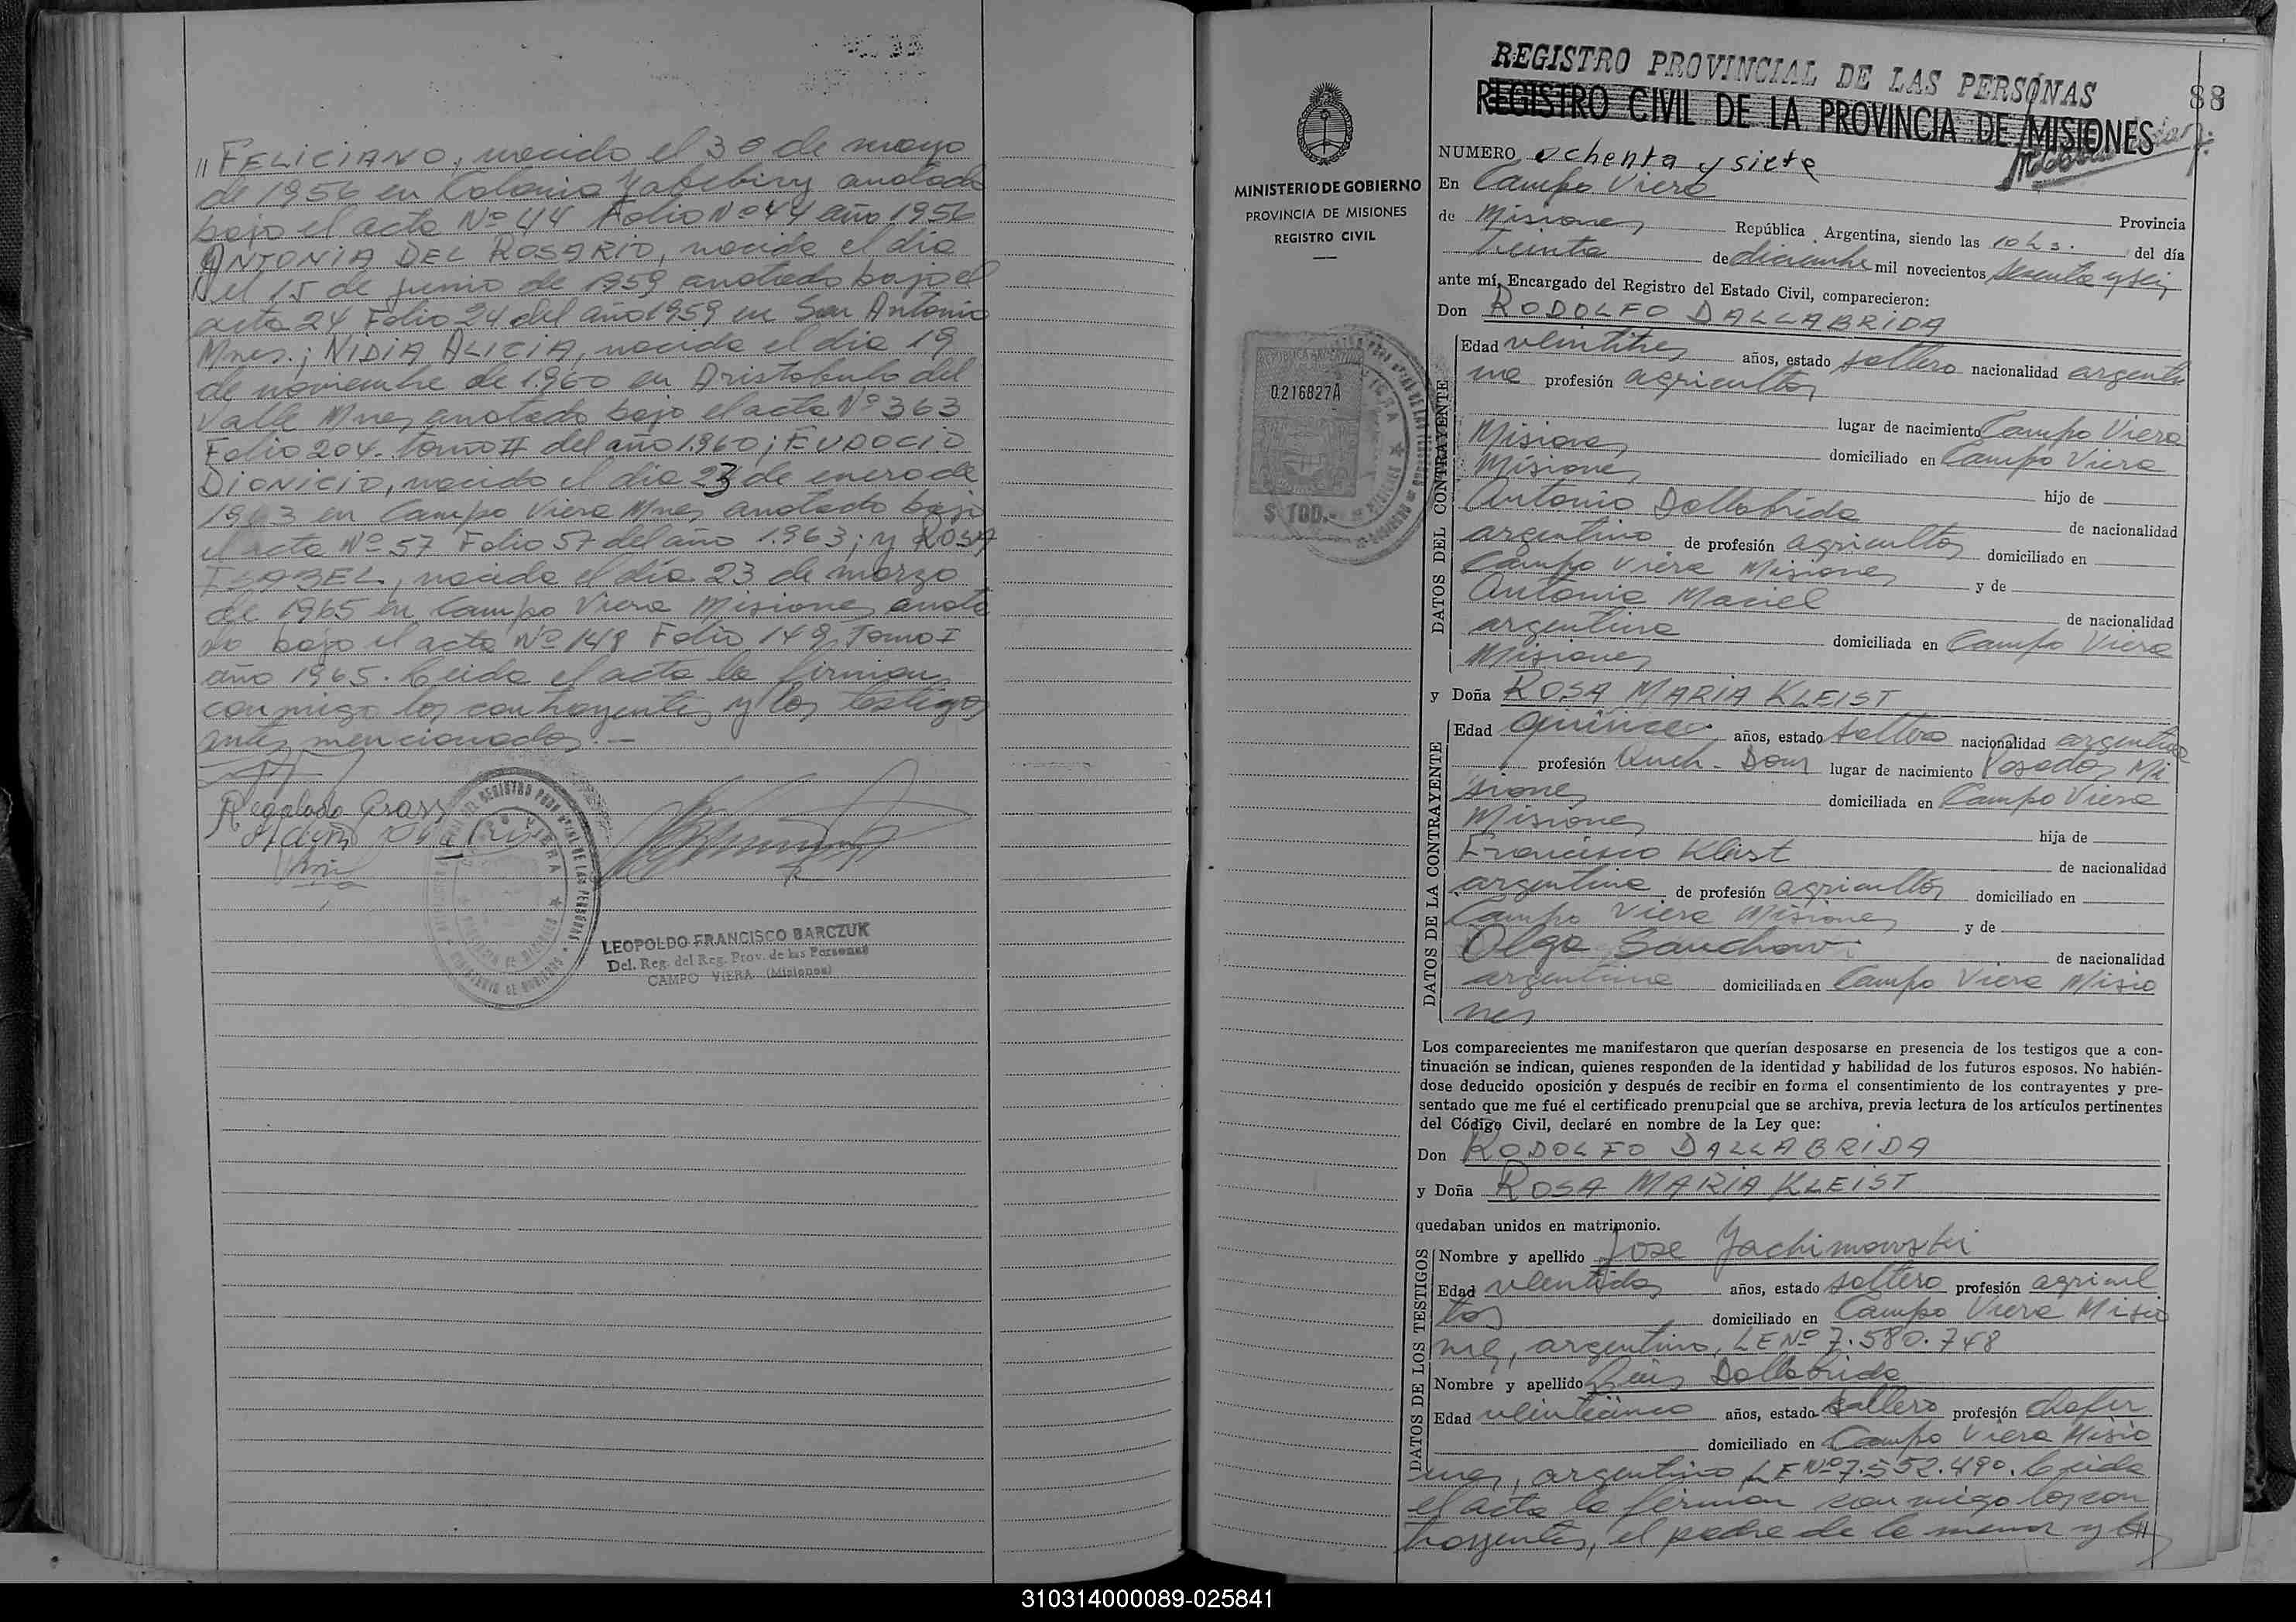 " FELICIANO, nacido el 30 de mayo
de 1956 en Colonia Yabebiry anotado
bajo el acta Nº 44 Folio Nº 44 año 1956
ANTONIA DEL ROSARIO, nacida el día
el 15 de junio de 1959 anotado bajo el
acta 24 Folio 24 del año 1959 en San Antonio
Mnes.; NIDIA ALICIA, nacida el día 19
de noviembre de 1.960 en Aristobulo del
Valle Mnes anotado bajo el acta Nº 363
Folio 204. tomo II del año 1.960; EUDOCIO
DIONICIO, nacido el día 23 de enero de
1963 en Campo Viera Mnes anotado bajo
el acta Nº 57 Folio 57 del año 1.963; y ROSA
ISABEL, nacida el día 23 de marzo
de 1965 en Campo Viera Misiones anota
do bajo el acta Nº 148 Folio 149, Tomo I
año 1965. Leida el acta la firman
conmigo los contrayentes y los testigos
antes mencionados.-
LEOPOLDO FRANCISCO BARCZUK
Del. Reg. del Reg. Prov. de las Personas
CAMPO VIERA (Misiones)
REGISTRO PROVINCIAL DE LAS PERSONAS
REGISTRO CIVIL DE LA PROVINCIA DE MISIONES
88
MINISTERIO DE GOBIERNO
PROVINCIA DE MISIONES
REGISTRO CIVIL
REPUBLICA ARGENTINA
0.216827A
$ 100.-
NUMERO ochenta y siete
En Campo Viera
Provincia
de Misiones República Argentina, siendo las 10 hs. del día
treinta de diciembre mil novecientos sesenta y seis
ante mí, Encargado del Registro del Estado Civil, comparecieron:
Don RODOLFO DALLABRIDA
DATOS DEL CONTRAYENTE
Edad veintitres años, estado soltero nacionalidad argenti
na profesión agricultor
lugar de nacimiento Campo Viera
Misiones domiciliado en Campo Viera
Misiones hijo de
Antonio Dallabrida de nacionalidad
argentino de profesión agricultor domiciliado en
Campo Viera Misiones y de
Antonia Maciel de nacionalidad
argentina domiciliada en Campo Viera
Misiones
y Doña ROSA MARIA KLEIST
DATOS DE LA CONTRAYENTE
Edad quince años, estado soltera nacionalidad argentina
profesión Queh. Dom lugar de nacimiento Posadas Mi
siones domiciliada en Campo Viera
Misiones hija de
Francisco Kleist de nacionalidad
argentina de profesión agricultor domiciliado en
Campo Viera Misiones y de
Olga de nacionalidad
argentina domiciliada en Campo Viera Misio
nes
Los comparecientes me manifestaron que querían desposarse en presencia de los testigos que a con-
tinuación se indican, quienes responden de la identidad y habilidad de los futuros esposos. No habién-
dose deducido oposición y después de recibir en forma el consentimiento de los contrayentes y pre-
sentado que me fué el certificado prenupcial que se archiva, previa lectura de los artículos pertinentes
del Código Civil, declaré en nombre de la Ley que:
Don RODOLFO DALLABRIDA
y Doña ROSA MARIA KLEIST
quedaban unidos en matrimonio.
DATOS DE LOS TESTIGOS
Nombre y apellido Jose Jachimowski
Edad veintidos años, estado soltero profesión agricul
tor domiciliado en Campo Viera Misio
nes, argentino, LE Nº 7.580.748
Nombre y apellido Luis Dallabrida
Edad veinticinco años, estado soltero profesión chofer
domiciliado en Campo Viera Misio
nes, argentino LE Nº 7.552.490. Leida
el acta la firman conmigo los con
trayentes, el padre de la menor y los //
310314000089-025841